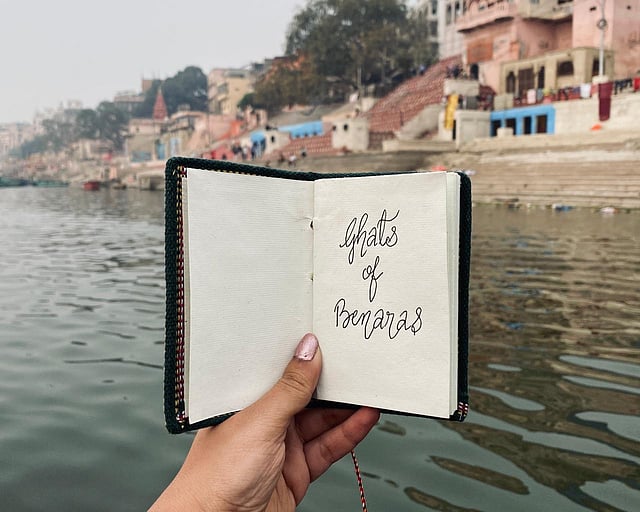 Ghats
of
Benaras